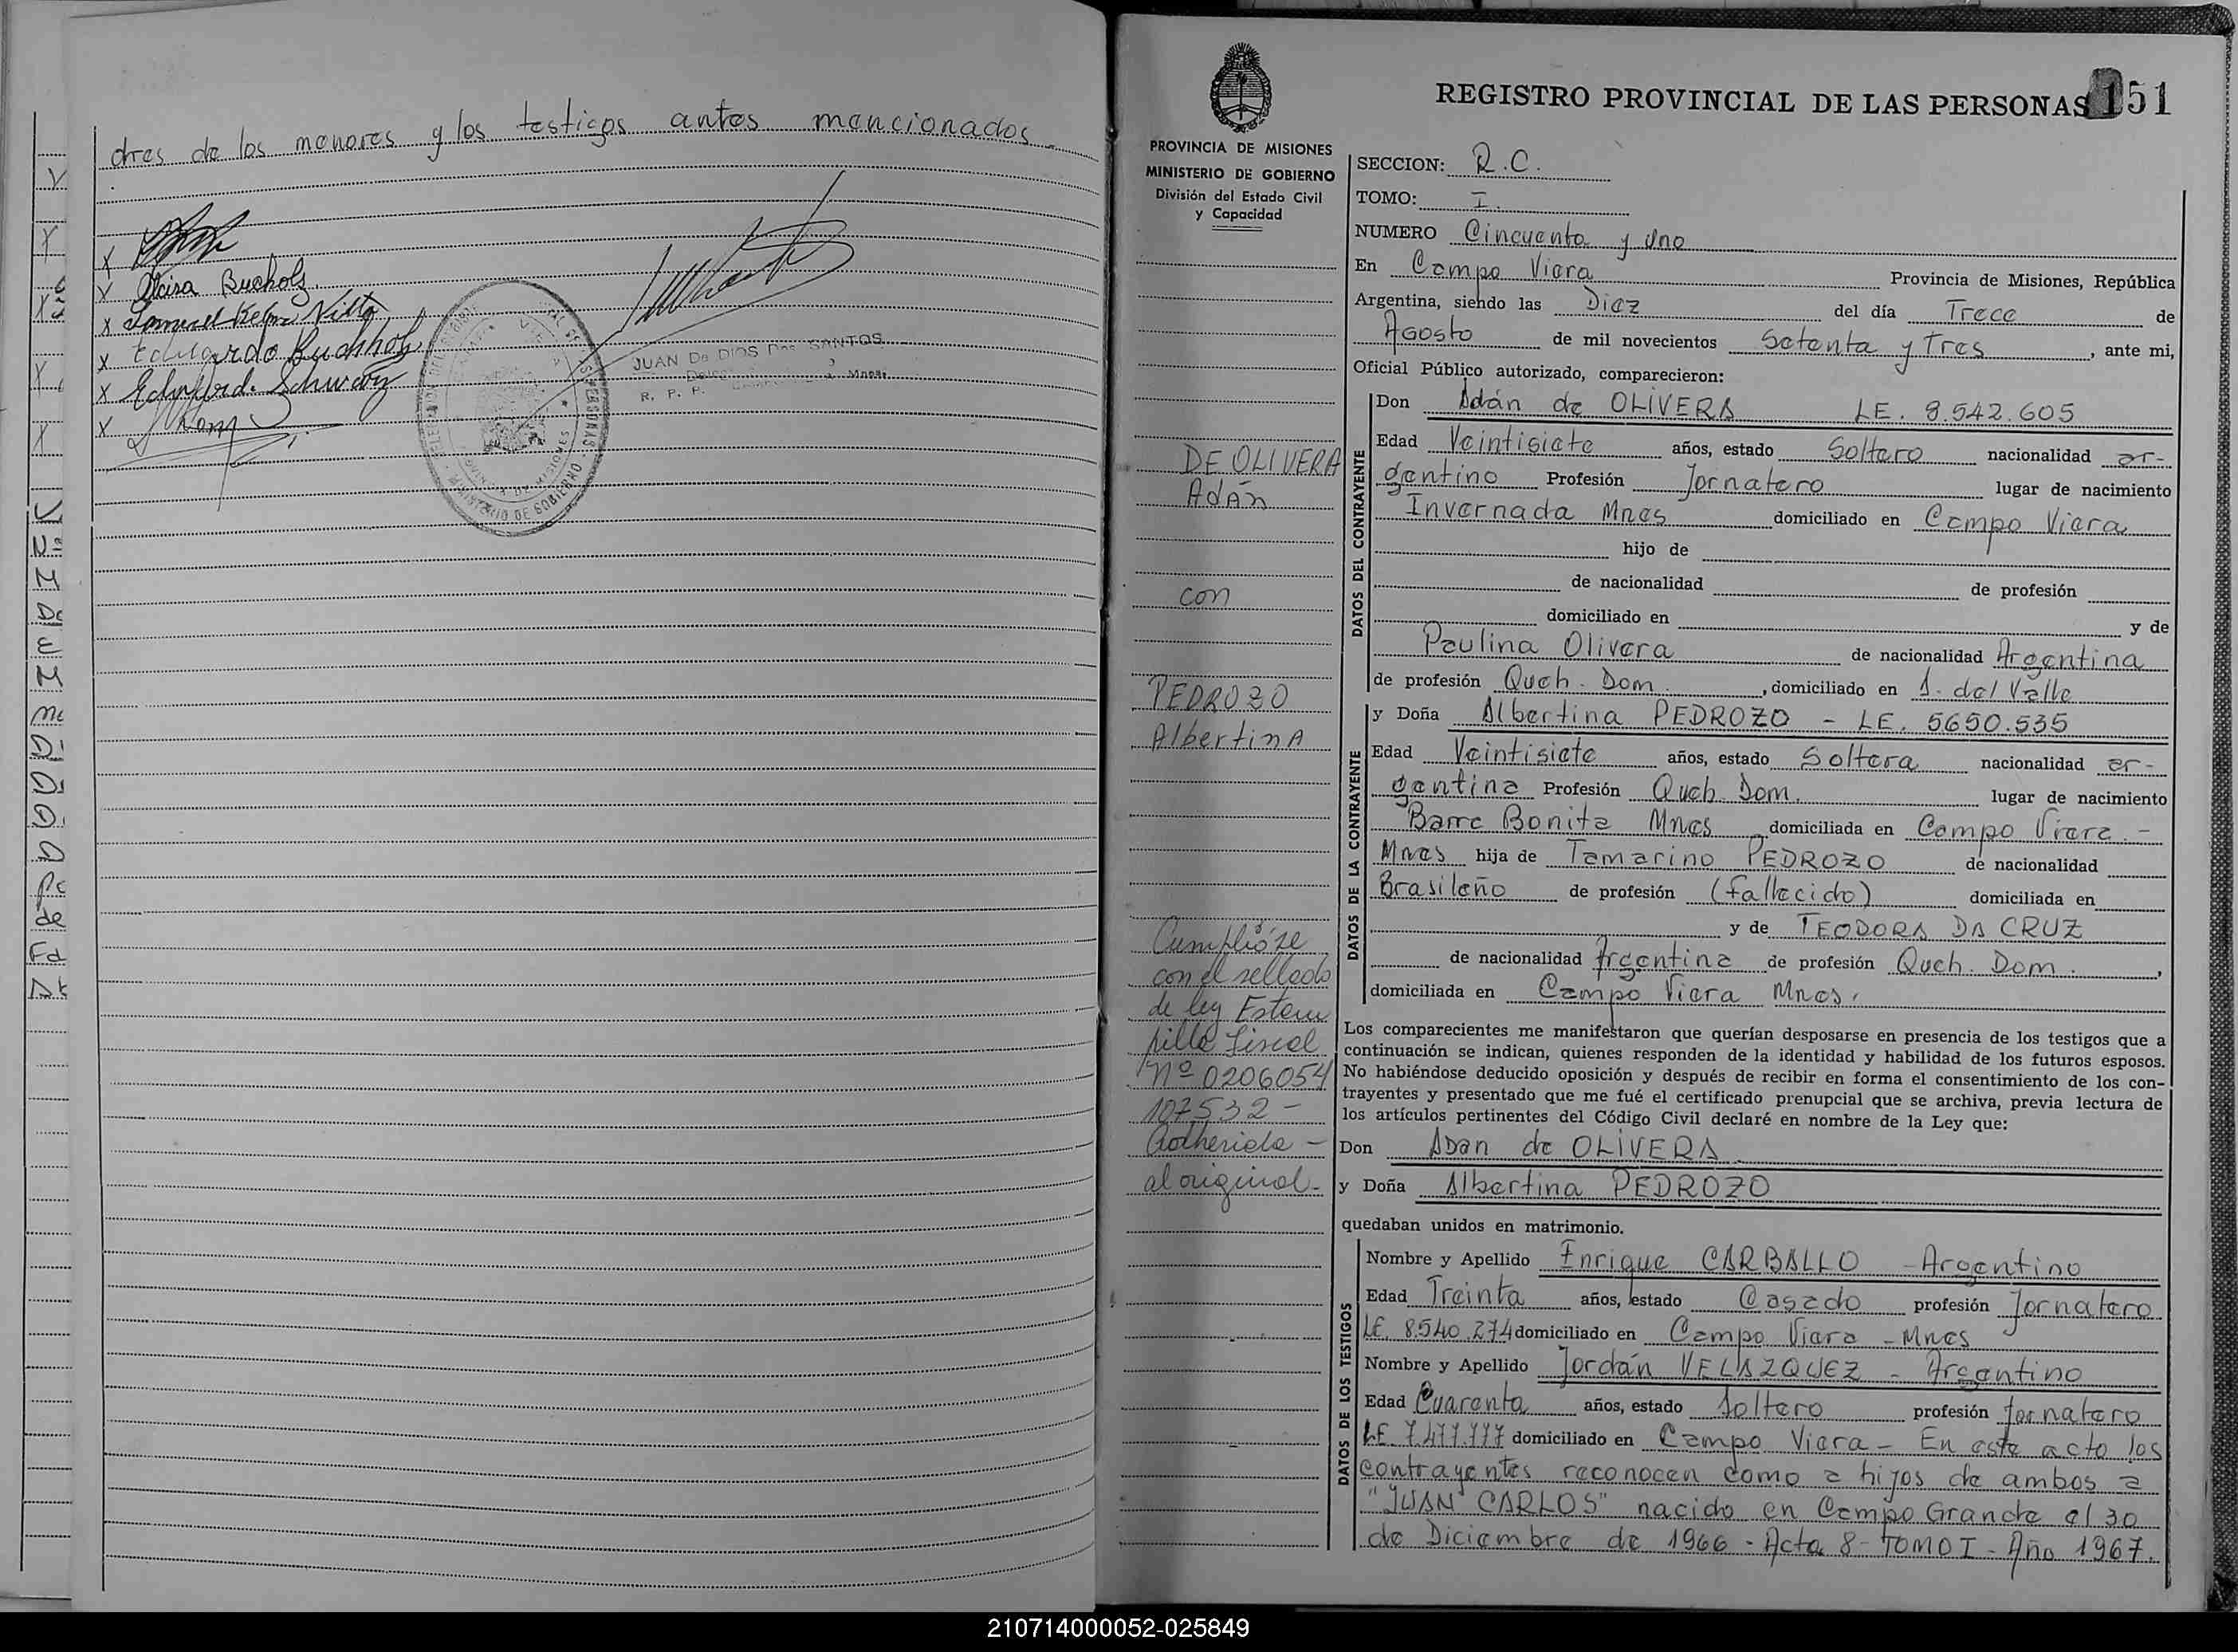 dres de los menores y los testigos antes mencionados.
x
x Bucholz
x
x Eduardo Buchholz
x Schwarz
x
JUAN De DIOS Dos SANTOS
R. P. P.
MINISTERIO DE GOBIERNO
REGISTRO PROVINCIAL DE LAS PERSONAS 151
PROVINCIA DE MISIONES
MINISTERIO DE GOBIERNO
División del Estado Civil
y Capacidad
DE OLIVERA
Adán
con
PEDROZO
Albertina
Cumplióse
con el sellado
de ley Estam
pilla fiscal
Nº 0206054
107532 -
Adherida -
al original -
SECCION: R.C.
TOMO: I.
NUMERO Cincuenta y uno
En Campo Viera Provincia de Misiones, República
Argentina, siendo las Diez del día Trece de
Agosto de mil novecientos Setenta y Tres, ante mi,
Oficial Público autorizado, comparecieron:
DATOS DEL CONTRAYENTE
Don Adán de OLIVERA LE. 8.542.605
Edad Veintisiete años, estado Soltero nacionalidad ar-
gentino Profesión Jornalero lugar de nacimiento
Invernada Mnes domiciliado en Campo Viera
hijo de
de nacionalidad de profesión
domiciliado en y de
Paulina Olivera de nacionalidad Argentina
de profesión Queh. Dom. , domiciliado en A. del Valle
DATOS DE LA CONTRAYENTE
y Doña Albertina PEDROZO - LE. 5650.535
Edad Veintisiete años, estado Soltera nacionalidad ar-
gentina Profesión Queh. Dom. lugar de nacimiento
Barra Bonita Mnes domiciliada en Campo Viera. -
Mnes hija de Tamarino PEDROZO de nacionalidad
Brasileño de profesión (fallecido) domiciliada en
y de TEODORA DA CRUZ
de nacionalidad Argentina de profesión Queh. Dom. ,
domiciliada en Campo Viera Mnes.
Los comparecientes me manifestaron que querían desposarse en presencia de los testigos que a
continuación se indican, quienes responden de la identidad y habilidad de los futuros esposos.
No habiéndose deducido oposición y después de recibir en forma el consentimiento de los con-
trayentes y presentado que me fué el certificado prenupcial que se archiva, previa lectura de
los artículos pertinentes del Código Civil declaré en nombre de la Ley que:
Don Adan de OLIVERA
y Doña Albertina PEDROZO
quedaban unidos en matrimonio.
DATOS DE LOS TESTIGOS
Nombre y Apellido Enrique CARBALLO - Argentino
Edad Treinta años, estado Casado profesión Jornalero
LE. 8.540.274 domiciliado en Campo Viera - Mnes
Nombre y Apellido Jordán VELAZQUEZ - Argentino
Edad Cuarenta años, estado Soltero profesión Jornalero
LE 7.477.777 domiciliado en Campo Viera - En este acto los
contrayentes reconocen como a hijos de ambos a
"JUAN CARLOS" nacido en Campo Grande el 30
de Diciembre de 1966 - Acta 8 - TOMO I - Año 1967.
210714000052-025849